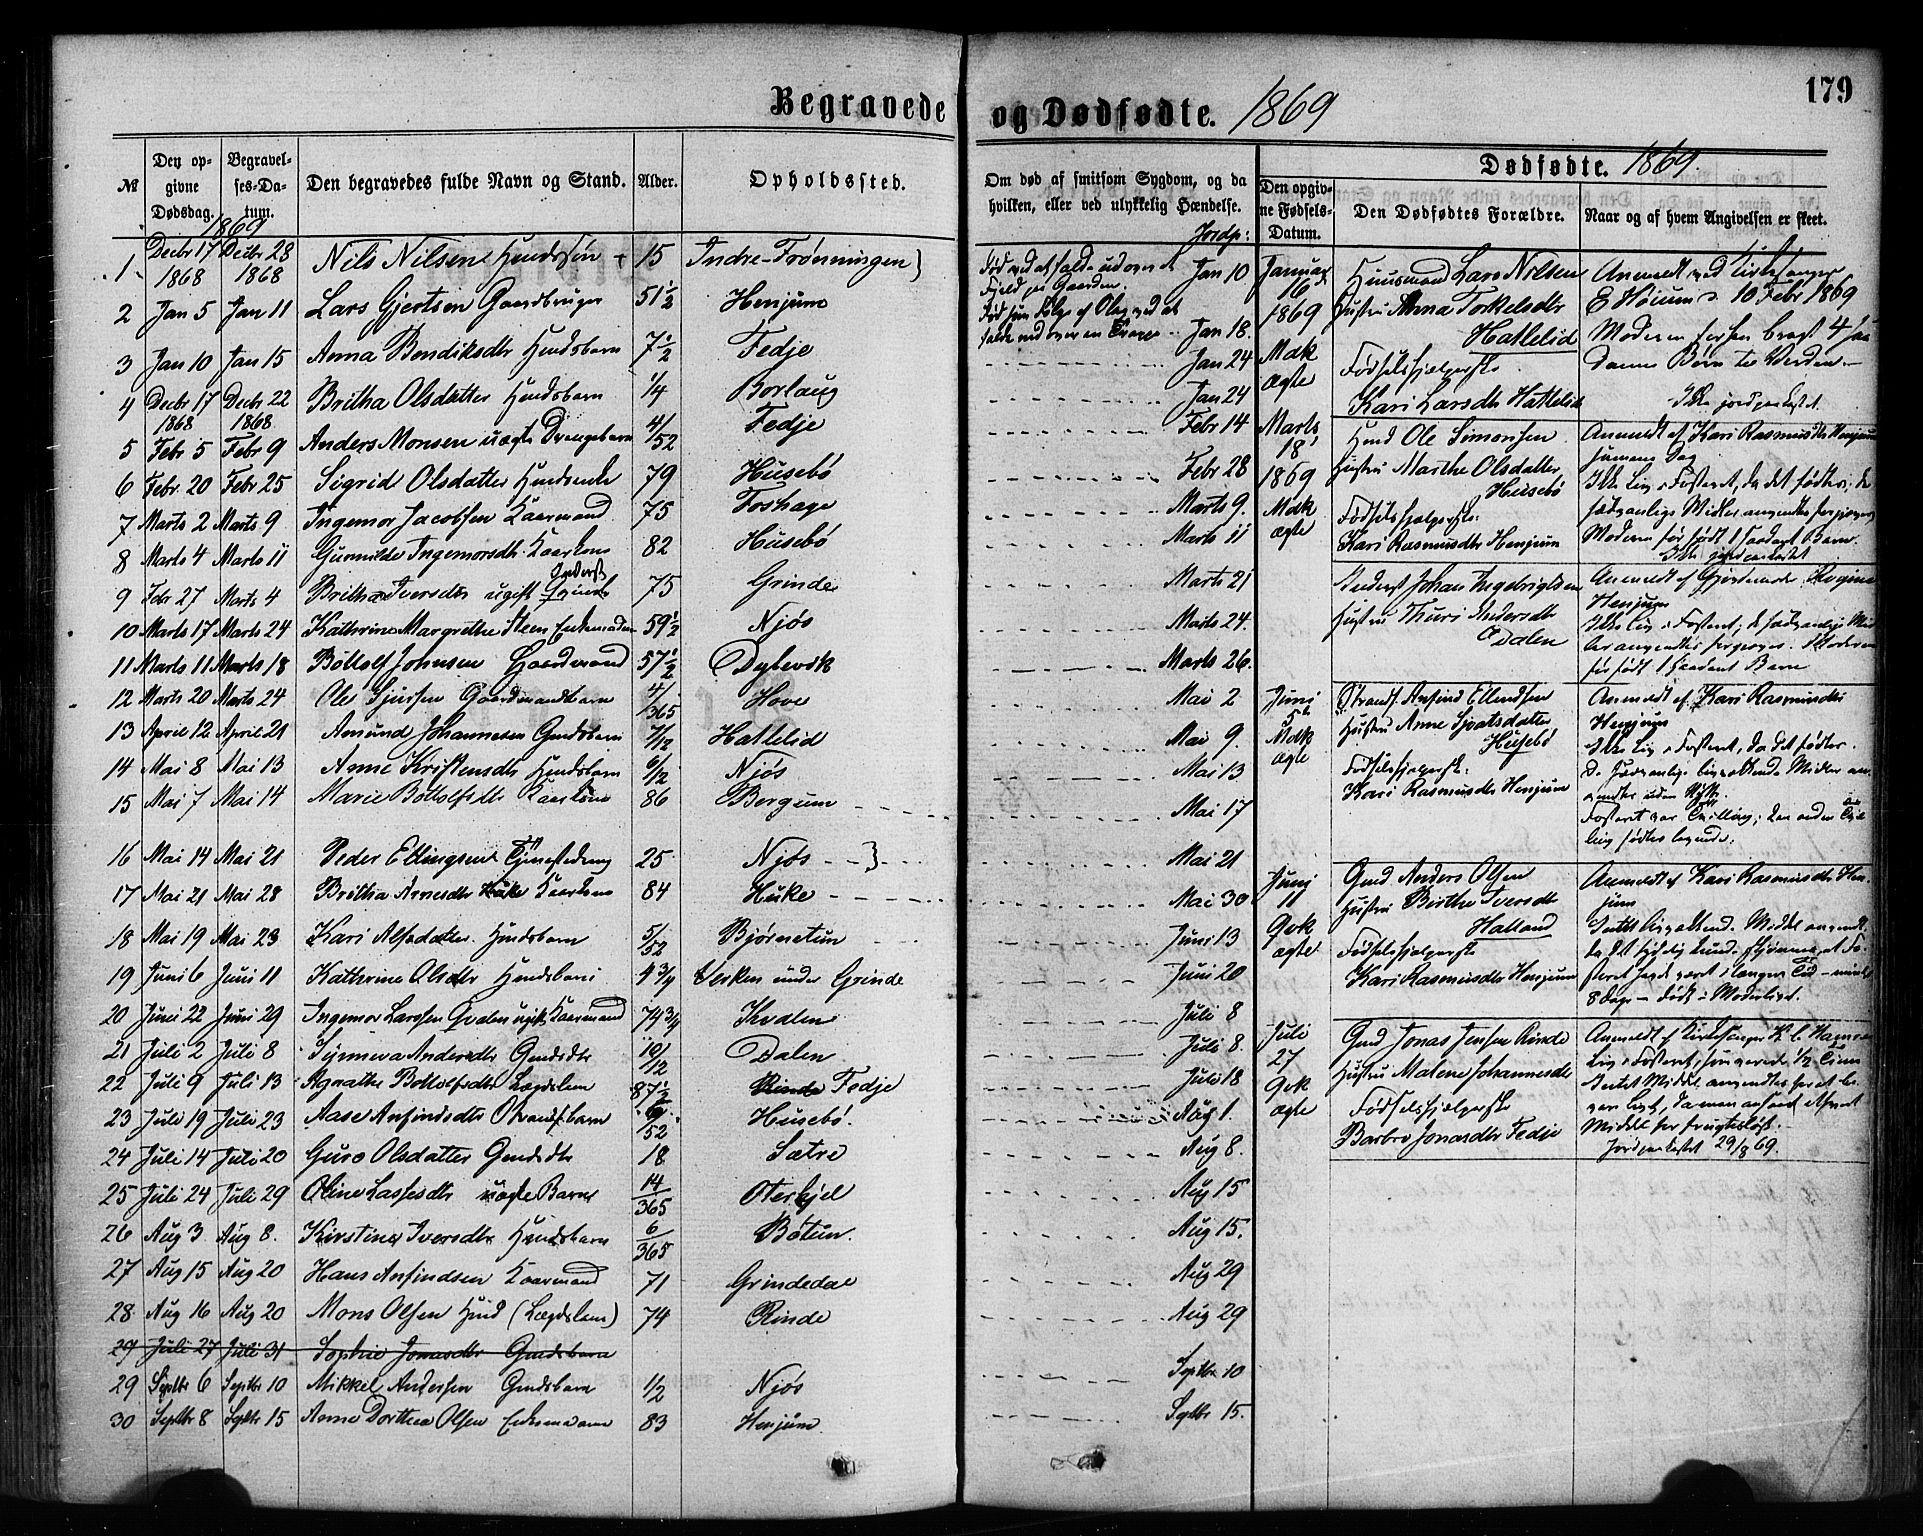 179
Begravede og Dødfødte. 1869
№
Den opgivne Dødsdag.
Begravelses-Datum.
Den begravedes fulde Navn og Stand.
Alder.
Opholdssted.
Om død af smitsom Sygdom, og da hvilken, eller ved ulykkelig Hændelse.
Jordp:
1869
1 Decbr 17 1868 Decbr 28 1868 Nils Nilsen 15 Indre-Frønningen Jan 10
2 Jan 5 Jan 11 Lars Gjertsen Gaardbruger 51 1/2 Henjum Jan 18
3 Jan 10 Jan 15 Anna Bendiksdtr Hmdsbarn 7 1/2 Fedje Jan 24
4 Decbr 17 1868 Decbr 22 1868 Britha Olsdatter Hmdsbarn 1/4 Borlaug Jan 24
5 Febr 5 Febr 9 Anders Monsen uægte Drengebarn 4/52 Fedje Febr 14
6 Febr. 20 Febr 25 Sigrid Olsdatter 79 Husebö Febr 28
7 Marts 2 Marts 9 Ingemor Jacobsen Kaarmand 75 Foshage Marts 9.
8 Marts 4 Marts 11 Gunnilde Ingemorsdtr Kaarkone 82 Husebö Marts 11
9 Febr 27 Marts 4 Britha Iversdtr ugift 75 Grinde Marts 21
10 Marts 17 Marts 24 Kathrine Margrethe Steen Enkemadam 59 1/2 Njøs Marts 24.
11 Marts 11 Marts 18 Böttolf Johnsen Gaardmand 57 1/2 Dybevik Marts 26.
12 Marts 20 Marts 24 Ole Sjursen Gaardmandsbarn 4/365 Hove Mai 2
13 April 12 April 21 Amund Johannesen Gmdsbarn 7/12 Hatlelid Mai 9.
14 Mai 8 Mai 13 Anne Kristensdtr Hmdsbarn 6/12 Njøs Mai 13
15 Mai 7 Mai 14 Marie Bottolfsdtr Kaarkone 86 Bergum Mai 17
16 Mai 14 Mai 21 Peder Ellingsen Tjenestedreng 25 Njøs Mai 21
17 Mai 21 Mai 28 Britha Arnesdtr Huke Kaarkone 84 Huke Mai 30
18 Mai 19 Mai 23 Kari Alfsdatter Hmdsbarn 5/52 Bjørnetun Juni 13
19 Juni 6 Juni 11 Kathrine Olsdtr Hmdsbarn 4 3/4 under Grinde Juni 20
20 Juni 22 Juni 29 Ingemor Larssen Kvalen ugift Kaarmand 74 3/4 Kvalen Juli 8
21 Juli 2 Juli 8 Synneva Andersdtr Gmdsdtr 10/12 Dalen Juli 8.
22 Juli 9 Juli 13 Agnathe Bottolfsdtr Lægdslem 87 1/2 Rinde Fedje Juli 18
23 Juli 19 Juli 23 Aase Anfindsdtr Strandsbarn 6/52 Husebö. Aug 1.
24 Juli 14 Juli 20 Guro Olsdatter Gmdsdtr 18 Sætre Aug 8.
25 Juli 24 Juli 29 Oline Lassesdtr uægte Barn 14/365 Oterhjel Aug 15
26 Aug 3 Aug 8. Kirstine Iversdtr Hmdsbarn 6/365 Bötun. Aug 15.
27 Aug 15 Aug 20 Hans Anfindsen Kaarmand 71 Grindedal Aug 29
28 Aug 16 Aug 20 Mons Olsen Hmd (Lægdslem) 74 Rinde Aug 29
29 Juli 27 Juli 31 Sophie Jonasdtr Gmdsbarn
29 Septbr 6 Septbr 10 Mikkel Andersen Gmdsbarn 1/2 Njös Septbr 10
30 Septbr 8 Septbr 15 Anne Dorthea Olsen 83 Henjum Septbr 15.
Dødfødte. 1869
Den opgivne Fødsels-Datum.
Den Dødfødtes Forældre.
Naar og af hvem Angivelsen er skeet.
Januar 16de 1869 Mdk ægte
Huusmand Lars Nilsen
Hustru Anna Torkelsdtr
Hatlelid
Fødselshjelperske
Kari Larsdtr Hatlelid
Anmeldt ved Kirkesanger
E Høium d. 10 Febr 1869
Moderen forhen bragt 4 saa
danne Børn til Verden
Ikke jordpaakastet
Marts 18 1869 Mdk ægte
Hmd Ole Simonsen
Hustru Marthe Olsdatter
Husebö
Fødselshjelperske:
Kari Rasmusdtr Henjum
Anmeldt af Kari Rasmusdtr Henjum
samme Dag
Ikke Liv i Fosteret, da det fødtes; de
sædvanlige Midler anvendtes forgjæves
Moderen før født 1 saadant Barn.
Ikke jordpaakastet
Inderst Johan Ingebrigtsen
Hustru Thuri Andersdtr
Dalen
Anmeldt af Gjordemoder Regine
Henjum
Ikke Liv i Fosteret; de sædvanlige Mid
ler anvendtes forgjæves. Moderen
før født 1 saadant Barn
Juni 5te Mdk ægte
Strands. Anfind Ellendsen
Hustru Anne Sjvatsdatter
Husebö
Fødselshjelperske:
Kari Rasmusdtr Henjum
Anmeldt af Kari Rasmusdtr
Henjum
Ikke Liv i Fosteret, da det fødtes.
De sædvanlige livvækkende Midler an-
vendtes uden Nytte.
Fosteret var Tvilling; den anden Tvil
ling fødtes levende.
Juni 11 Qvk ægte
Gmd Anders Olsen
Hustru Birthe Iversdtr
Hatland
Fødselshjelperske
Kari Rasmusdtr Henjum
Anmeldt af Kari Rasmusdtr Hen-
jum
Intet livvækkend. Middel anvendt,
da det tydelig kund. skjønnes, at Fo-
steret havde været i længere Tid - mindst
8 Dage - dødt i Moderlivet.
Juli 27 Qvk ægte
Gmd Jonas Jensen Rinde
Hustru Malene Johannesdtr
Fødselshjelperske
Barbro Jonasdtr Fedje
Anmeldt af Kirkesanger
Liv i Fosteret 1/2 Time
Intet Middel anvendtes for at be-
vare Livet, da man ansaae ethvert
Middel for frugtesløst.
Jordpaakastet 29/8 69.